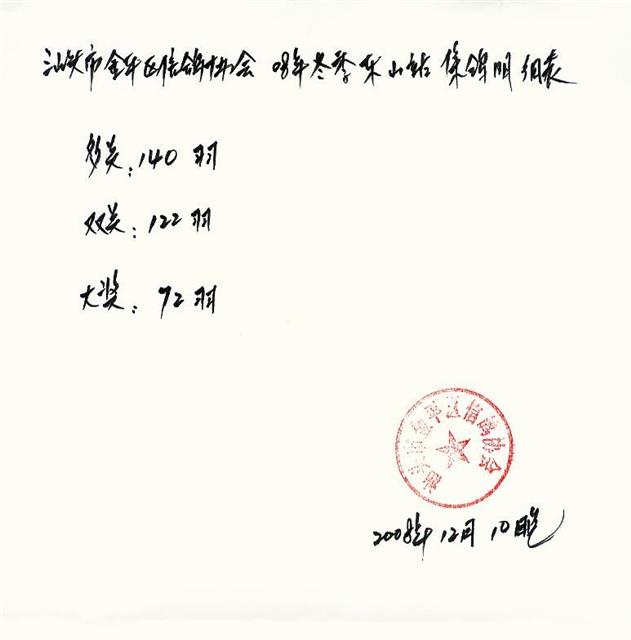 汕头市金平区信鸽协会 08年冬季东山站集鸽明细表
多关:140羽
双关:122羽
大奖:72羽
汕头市金平区信鸽协会
2008年12月10日晚